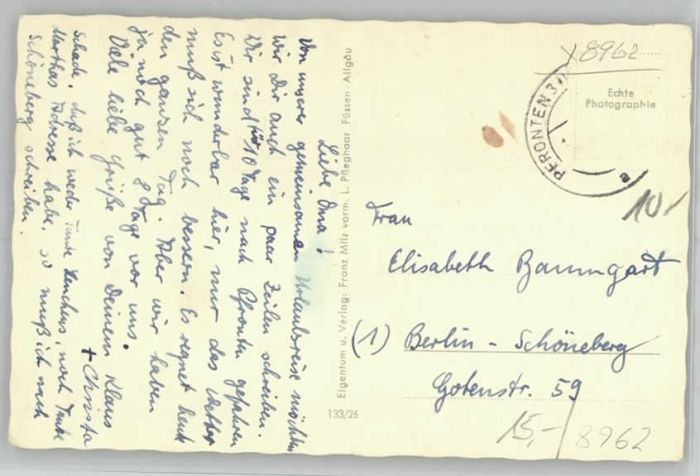 Liebe Oma!
Von unserer gemeinsamen Urlaubsreise möchten
wir Dir auch ein paar Zeilen schreiben.
Wir sind für 10 Tage nach Pfronten gefahren
Es ist wunderbar hier, nur das Wetter
muß sich noch bessern. Es regnet heute
den ganzen Tag. Aber wir haben
ja noch gut 8 Tage vor uns.
Viele liebe Grüße von Deinem Klaus
+ Christa
Schade, daß ich weder Tante noch Tante
Marthas Adresse habe, so muß ich nach
Schöneberg schreiben.
Eigentum u. Verlag: Franz Milz vorm. L. Pfleghaar, Füssen - Allgäu
133/26
8962
Echte
Photographie
PFRONTEN
10,-
Frau
Elisabeth Baumgart
(1) Berlin - Schöneberg
Gotenstr. 59
15,-
8962